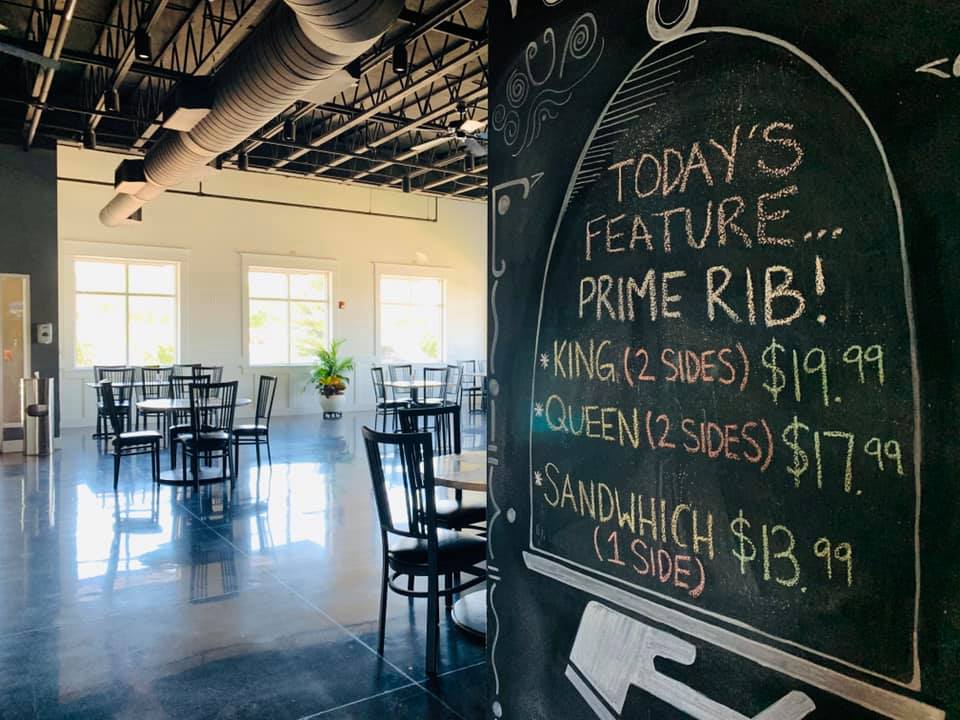 TODAY'S
FEATURE...
PRIME RIB!
*KING (2 SIDES) $19.99
*QUEEN (2 SIDES) $17.99
*SANDWHICH $13.99
(1 SIDE)